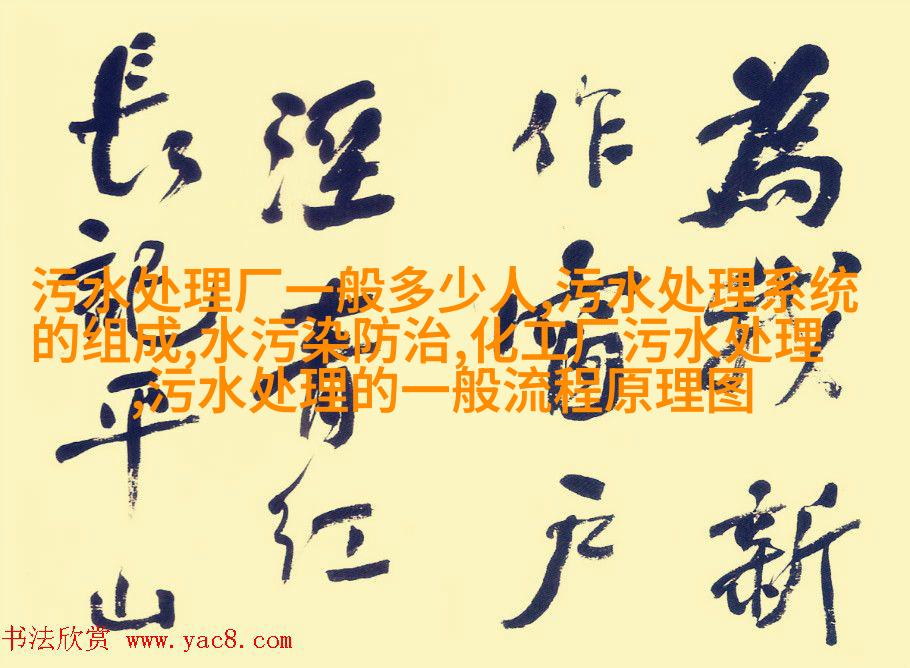 為我新
作窗户
溼青红
長記平山
污水处理厂一般多少人,污水处理系统
的组成,水污染防治,化工厂污水处理
,污水处理的一般流程原理图
书法欣赏 www.yac8.com